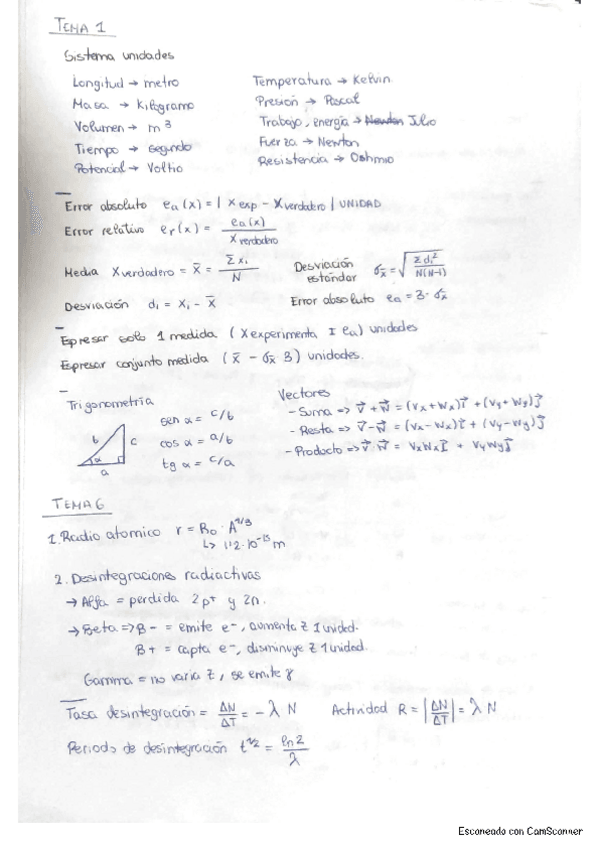 TEMA 1
Sistema unidades
Longitud → metro
Masa → Kilogramo
Volumen → m³
Tiempo → segundo
Potencial → Voltio
Temperatura → Kelvin
Presión → Pascal
Trabajo, energía → Newton Julio
Fuerza → Newton
Resistencia → Oohmio
Error absoluto ea (x) = | x exp - x verdadero | UNIDAD
Error relativo er (x) = ea (x) / x verdadero
Media x verdadero = x̄ = Σ xi / N
Desviación estándar σx̄ = √(Σ di² / N(N-1))
Desviación di = xi - x̄
Error absoluto ea = 3 · σx̄
Espresar solo 1 medida ( x experimenta ± ea ) unidades
Espresar conjunto medida ( x̄ - σx̄ 3 ) unidades.
Trigonometría
sen α = c/b
cos α = a/b
tg α = c/a
b
c
α
a
Vectores
- Suma => v⃗ + w⃗ = (vx + wx) i⃗ + (vy + wy) j⃗
- Resta => v⃗ - w⃗ = (vx - wx) i⃗ + (vy - wy) j⃗
- Producto => v⃗ · w⃗ = vx wx i⃗ + vy wy j⃗
TEMA 6
1. Radio atomico r = R0 · A^1/3
↳ 1'2 · 10⁻¹⁵ m
2. Desintegraciones radiactivas
→ Alfa = perdida 2p⁺ y 2n.
→ Beta => B- = emite e⁻, aumenta z 1 unidad.
B+ = capta e⁻, disminuye z 1 unidad.
Gamma = no varia z, se emite γ
Tasa desintegración = ΔN/ΔT = - λ N
Actividad R = |ΔN/ΔT| = λ N
Periodo de desintegración t^1/2 = ln 2 / λ
Escaneado con CamScanner